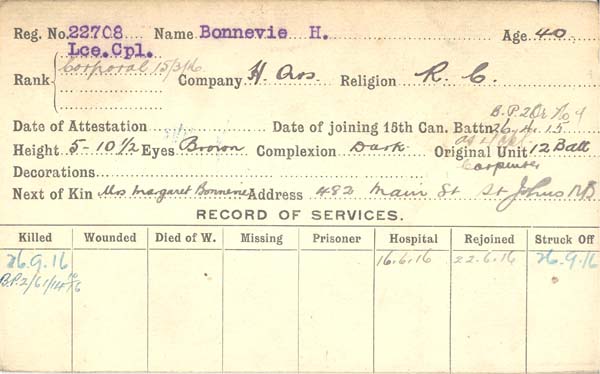 Reg. No. 22708 Name Bonnevie H. Age 40
Lce. Cpl.
Corporal 15/3/16
Rank Company H. Qrs. Religion R. C.
B.P. 2 Or No 9
Date of Attestation Date of joining 15th Can. Battn. 26.4.15
Height 5-10½ Eyes Brown Complexion Dark Original Unit 12 Batt
Decorations Carpenter
Next of Kin Mrs Margaret Bonnevie Address 482 Main St St Johns NB
RECORD OF SERVICES.
Killed Wounded Died of W. Missing Prisoner Hospital Rejoined Struck Off
26.9.16 16.6.16 22.6.16 26.9.16
B.P.2/61/14